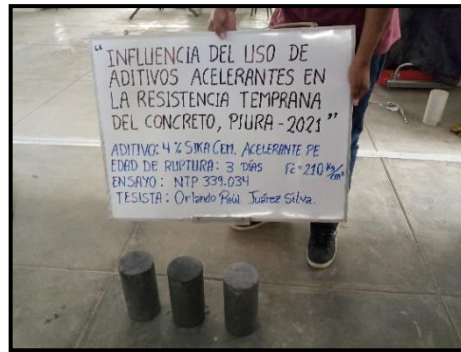 "INFLUENCIA DEL USO DE
ADITIVOS ACELERANTES EN
LA RESISTENCIA TEMPRANA
DEL CONCRETO, PIURA - 2021"
ADITIVO: 4 % SIKA CEM. ACELERANTE PE
EDAD DE RUPTURA: 3 DÍAS f'c = 210 kg/cm²
ENSAYO: NTP 339.034
TESISTA: Orlando Paúl Juárez Silva.